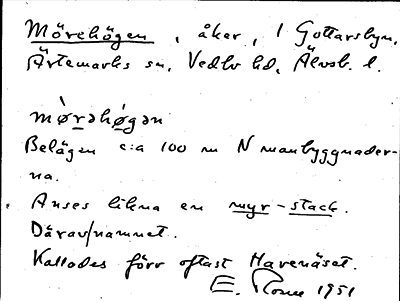 Mörehögen, åker, 1 Gottarsbyn,
Ärtemarks sn, Vedbo hd, Älvsb. l.
mø̀rəhǿgən
Belägen c:a 100 m N manbyggnader-
na.
Anses likna en myr-stack.
Därav namnet.
Kallades förr oftast Havenäset.
E. 1951